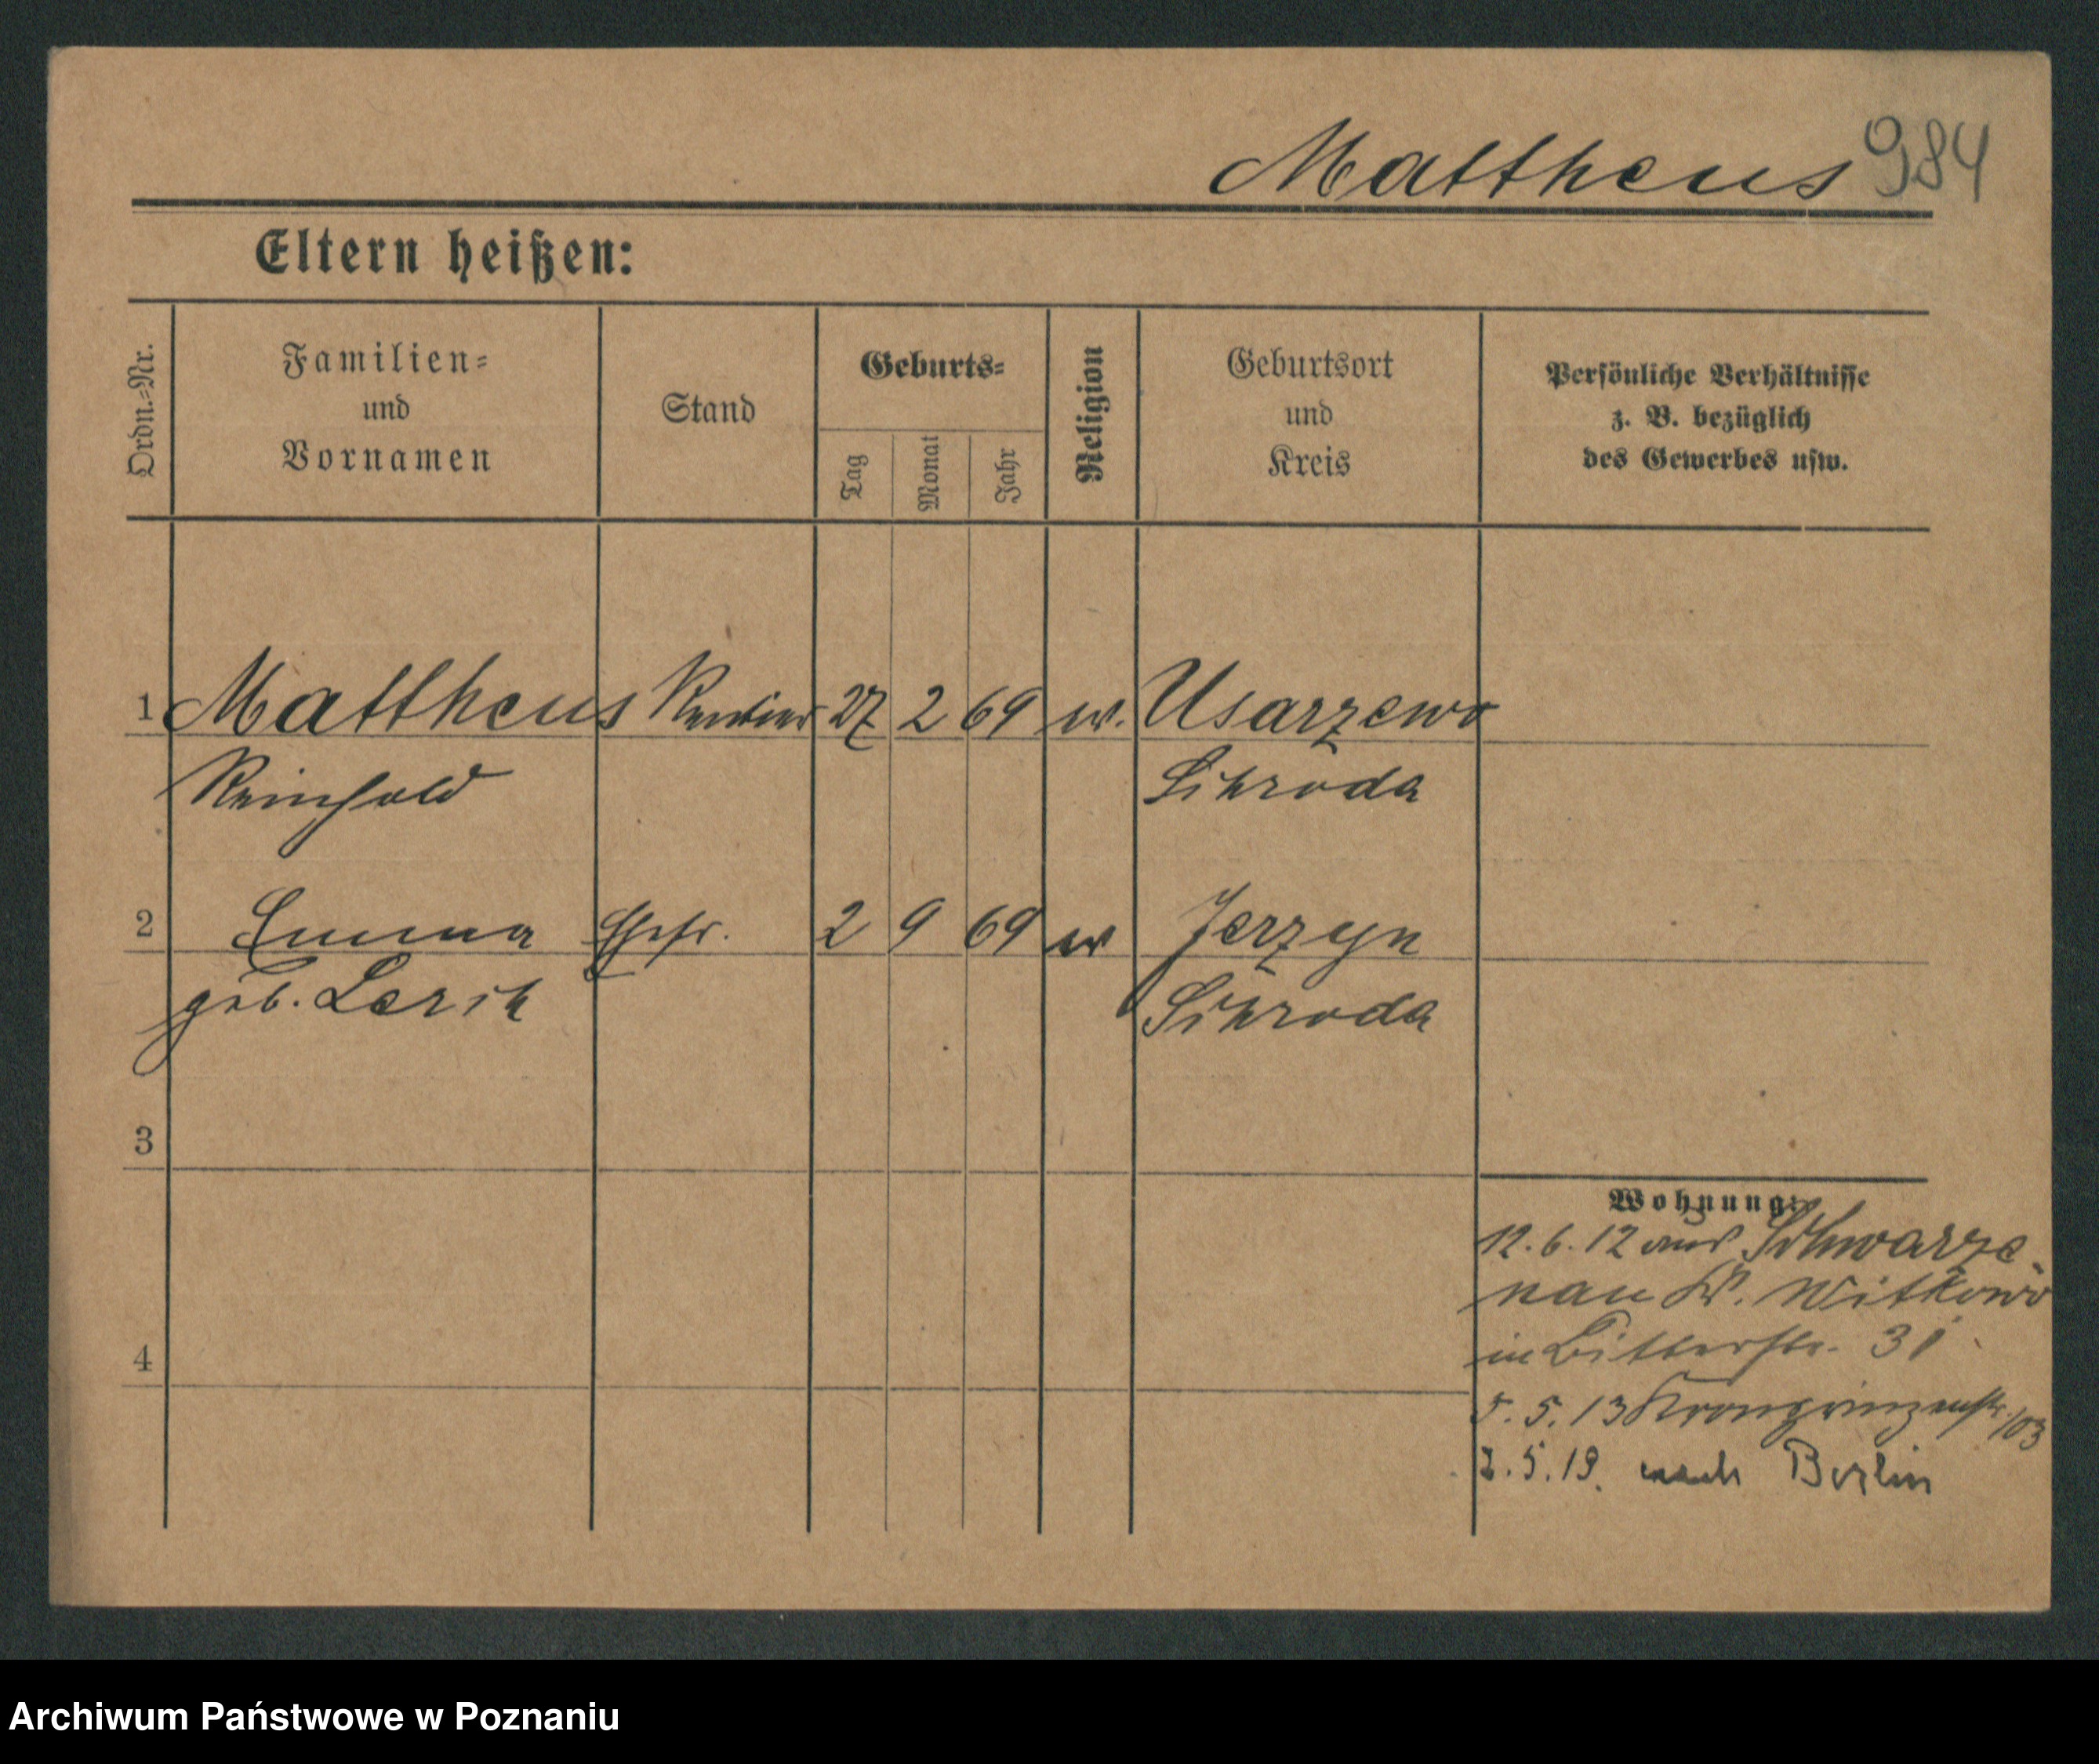 Mattheus 984
Eltern heißen:
Ordn.-Nr.
Familien-
und
Vornamen
Stand
Geburts-
Tag
Monat
Jahr
Religion
Geburtsort
und
Kreis
Persönliche Verhältnisse
z. B. bezüglich
des Gewerbes usw.
1 Mattheus Rentier 27 2 69 ev. Usarzewo
Reinhold Schroda
2 Emma Ehefr. 2 9 69 ev Jerzyn
geb. Schroda
3
4
Wohnung:
12.6.12 aus Schwarze-
nau Kr. Witkowo
in Bitterstr. 31
5.5.13 Kronprinzenstr. 103
5.19. nach Berlin
Archiwum Państwowe w Poznaniu